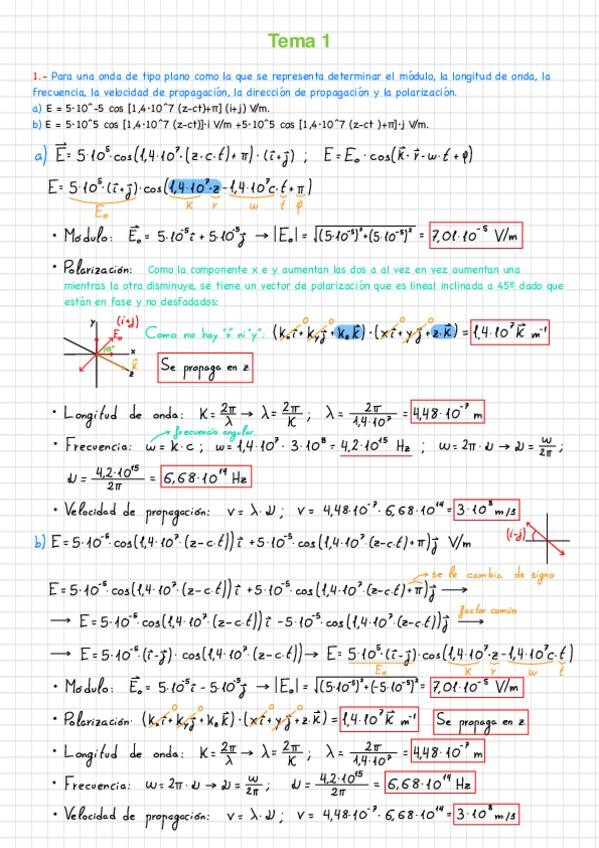 Tema 1
1.- Para una onda de tipo plano como la que se representa determinar el módulo, la longitud de onda, la
frecuencia, la velocidad de propagación, la dirección de propagación y la polarización.
a) E = 5·10^-5 cos [1,4·10^7 (z-ct)+π] (i+j) V/m.
b) E = 5·10^5 cos [1,4·10^7 (z-ct)]·i V/m +5·10^5 cos [1,4·10^7 (z-ct )+π]·j V/m.
a) E⃗ = 5·10⁵·cos(1,4·10⁷·(z-c·t)+π)·(î+ĵ) ; E = E₀·cos(k⃗·r⃗-w·t+φ)
E = 5·10⁵·(î+ĵ)·cos(1,4·10⁷·z-1,4·10⁷c·t+π)
E₀ K r w t φ
· Módulo: E⃗₀ = 5·10⁻⁵î + 5·10⁻⁵ĵ → |E₀| = √((5·10⁻⁵)²+(5·10⁻⁵)²) = 7,01·10⁻⁵ V/m
· Polarización: Como la componente x e y aumentan las dos a al vez en vez aumentan una
mientras la otra disminuye, se tiene un vector de polarización que es lineal inclinada a 45º dado que
están en fase y no desfadados:
y (i+j) E₀ x z K⃗
Como no hay "x" ni "y": (kₓî+k_yĵ+k_z k⃗)·(xî+yĵ+z·k⃗) = 1,4·10⁷k⃗ m⁻¹
0 0 0 0
Se propaga en z
· Longitud de onda: K = 2π/λ → λ = 2π/K ; λ = 2π/1,4·10⁷ = 4,48·10⁻⁷ m
frecuencia angular
· Frecuencia: w = k·c ; w = 1,4·10⁷ · 3·10⁸ = 4,2·10¹⁵ Hz ; w = 2π·ν → ν = w/2π ;
ν = 4,2·10¹⁵/2π = 6,68·10¹⁴ Hz
· Velocidad de propagación: v = λ·ν ; v = 4,48·10⁻⁷· 6,68·10¹⁴ = 3·10⁸ m/s
b) E = 5·10⁻⁵·cos(1,4·10⁷·(z-c·t)) î + 5·10⁻⁵·cos(1,4·10⁷·(z-c·t)+π)ĵ V/m
(i-j)
se le cambia de signo
E = 5·10⁻⁵·cos(1,4·10⁷·(z-c·t)) î + 5·10⁻⁵·cos(1,4·10⁷·(z-c·t)+π)ĵ →
factor común
→ E = 5·10⁻⁵·cos(1,4·10⁷·(z-c·t)) î - 5·10⁻⁵·cos(1,4·10⁷·(z-c·t))ĵ →
→ E = 5·10⁻⁵·(î-ĵ)·cos(1,4·10⁷·(z-c·t)) → E = 5·10⁵·(î-ĵ)·cos(1,4·10⁷·z-1,4·10⁷c·t)
E₀ K r w t
· Módulo: E⃗₀ = 5·10⁻⁵î - 5·10⁻⁵ĵ → |E₀| = √((5·10⁻⁵)²+(-5·10⁻⁵)²) = 7,01·10⁻⁵ V/m
· Polarización: (kₓî+k_yĵ+k_z k⃗)·(xî+yĵ+z·k⃗) = 1,4·10⁷k⃗ m⁻¹ Se propaga en z
· Longitud de onda: K = 2π/λ → λ = 2π/K ; λ = 2π/1,4·10⁷ = 4,48·10⁻⁷ m
· Frecuencia: w = 2π·ν → ν = w/2π ; ν = 4,2·10¹⁵/2π = 6,68·10¹⁴ Hz
· Velocidad de propagación: v = λ·ν ; v = 4,48·10⁻⁷· 6,68·10¹⁴ = 3·10⁸ m/s